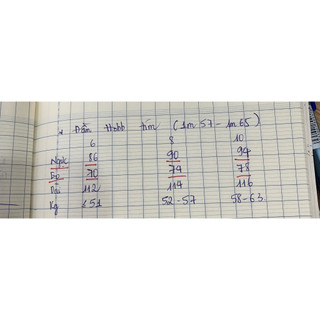 * Đầm Hnhh tím (1m57 - 1m65)
6 8 10
Ngực 86 90 94
Eo 70 74 78
Dài 112 114 116
Kg <51 52-57 58-63